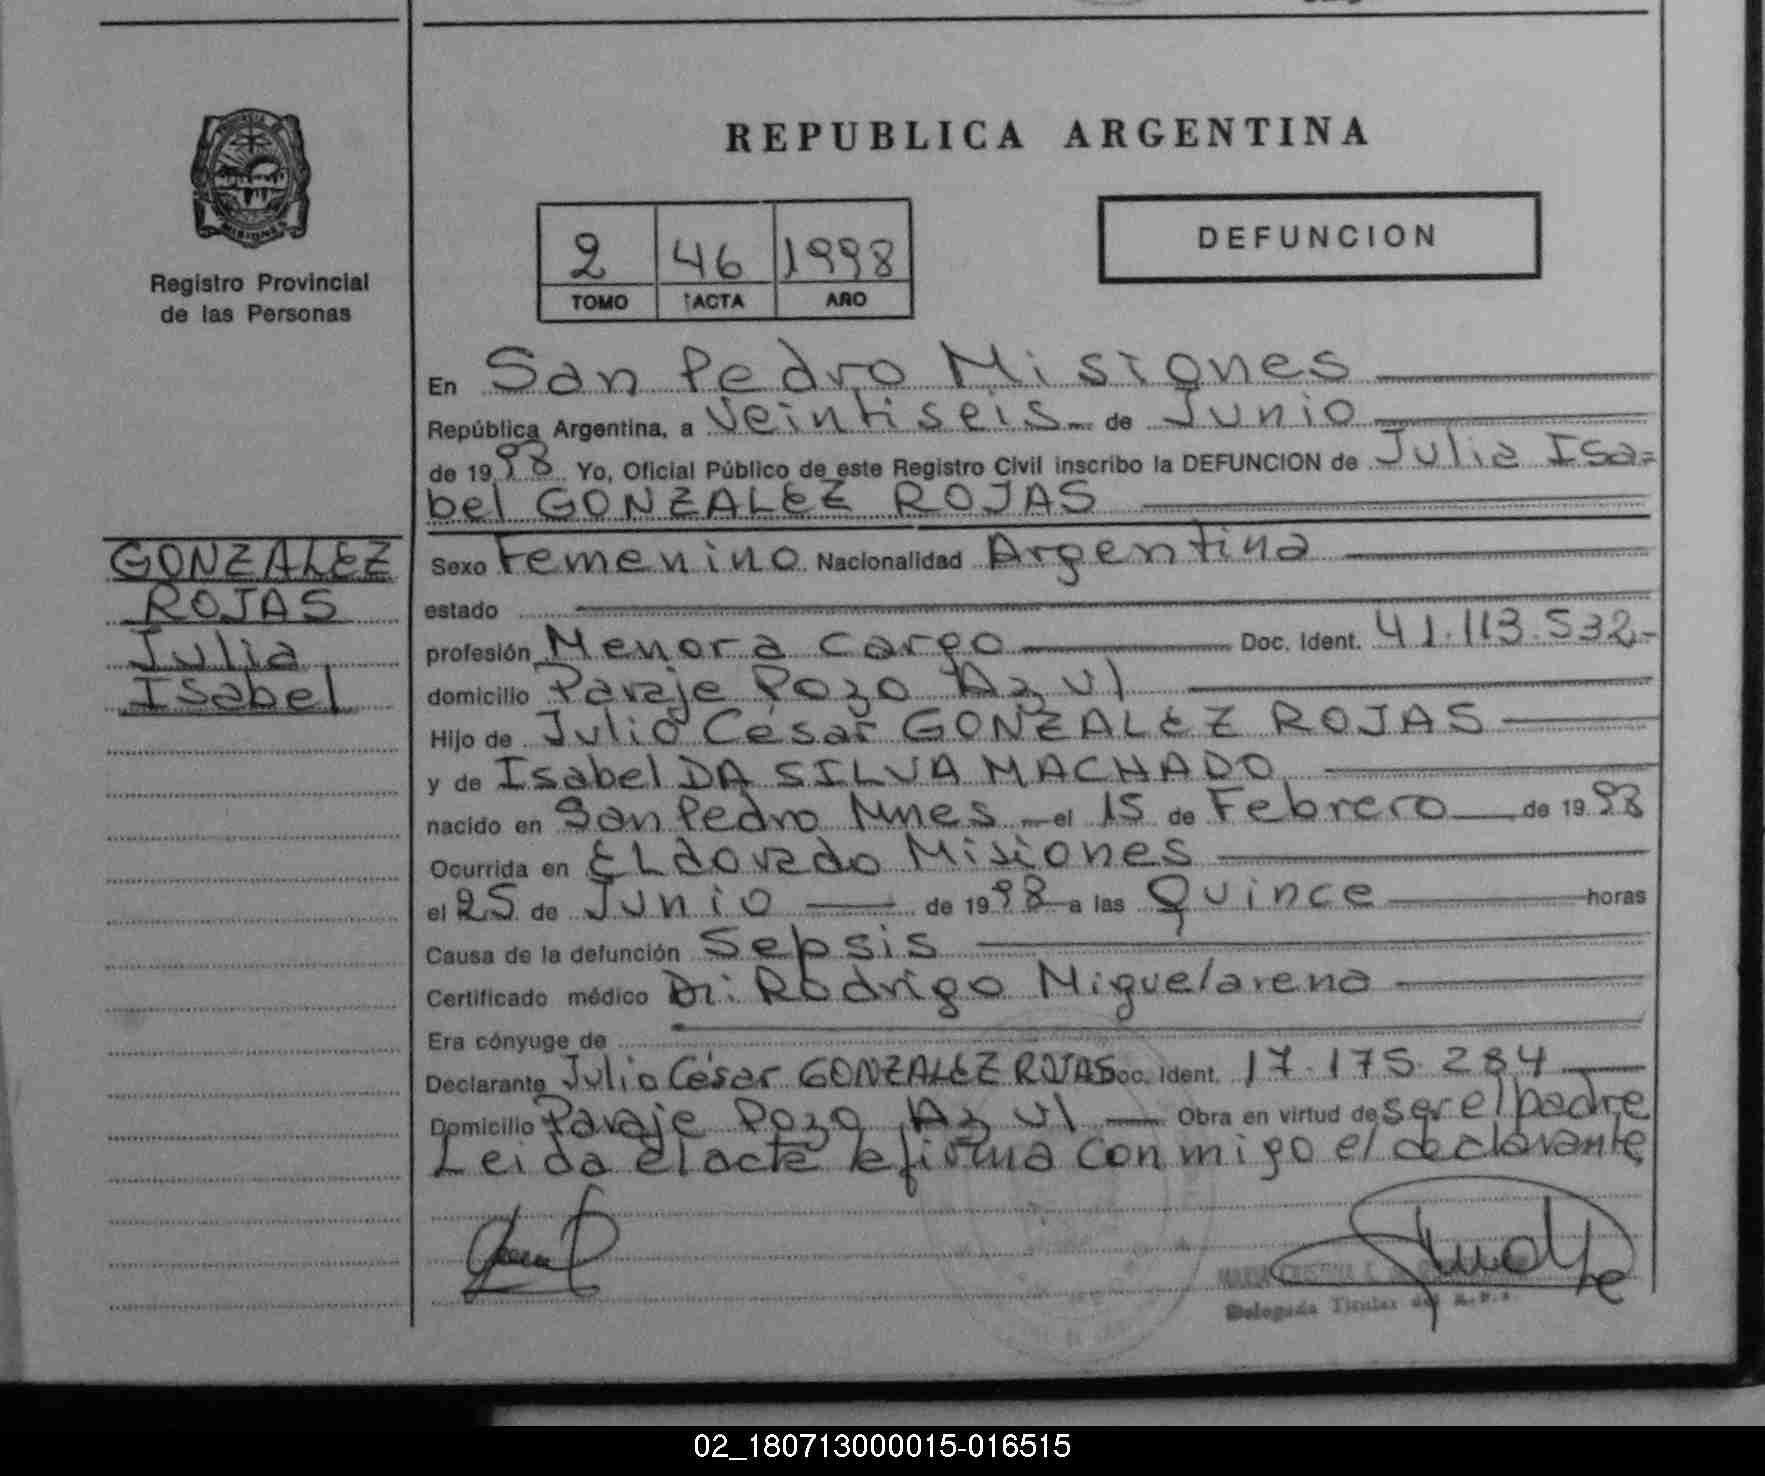 REPUBLICA ARGENTINA
PROVINCIA DE
MISIONES
Registro Provincial
de las Personas
2 46 1998
TOMO ACTA AÑO
DEFUNCION
En San Pedro Misiones
República Argentina, a Veintiseis de Junio
de 1998 Yo, Oficial Público de este Registro Civil inscribo la DEFUNCION de Julia Isa=
bel GONZALEZ ROJAS
GONZALEZ
ROJAS
Julia
Isabel
Sexo Femenino Nacionalidad Argentina
estado
profesión Menor a cargo Doc. Ident. 41.113.532-
domicilio Paraje Pozo Azul
Hijo de Julio César GONZALEZ ROJAS
y de Isabel DA SILVA MACHADO
nacido en San Pedro Mnes el 15 de Febrero de 1998
Ocurrida en ELdorado Misiones
el 25 de Junio de 1998 a las Quince horas
Causa de la defunción Sepsis
Certificado médico Dr: Rodrigo Miguelarena
Era cónyuge de
Declarante Julio César GONZALEZ ROJAS Doc. Ident. 17.175.284
Domicilio Paraje Pozo Azul Obra en virtud de ser el padre
Leida el acta la firma con migo el declarante
MARIA CRISTINA
Delegada Titular del R.P.P.
02_180713000015-016515